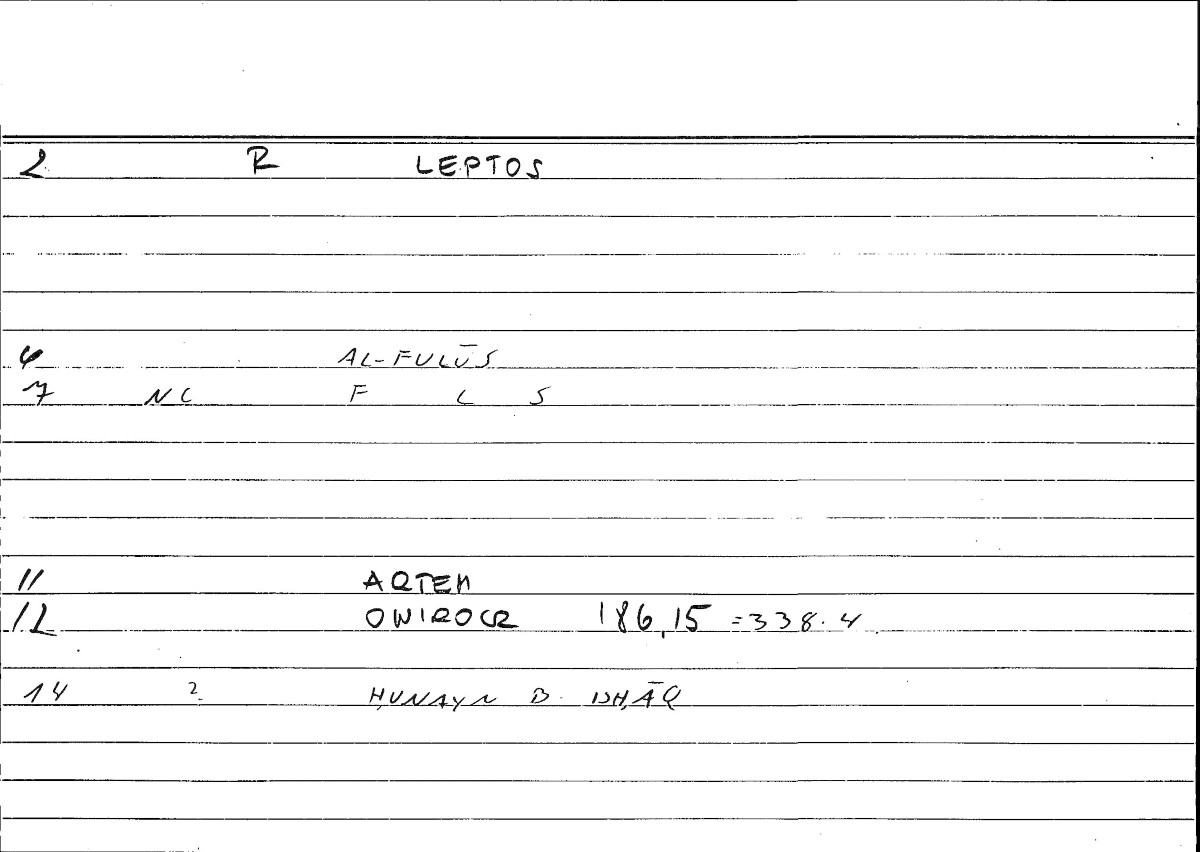 2 R LEPTOS
6 AL-FULŪS
7 NC F L S
11 ARTEM
12 ONIROCR 186,15 =338.4
14 2 ḤUNAYN B. ISḤĀQ